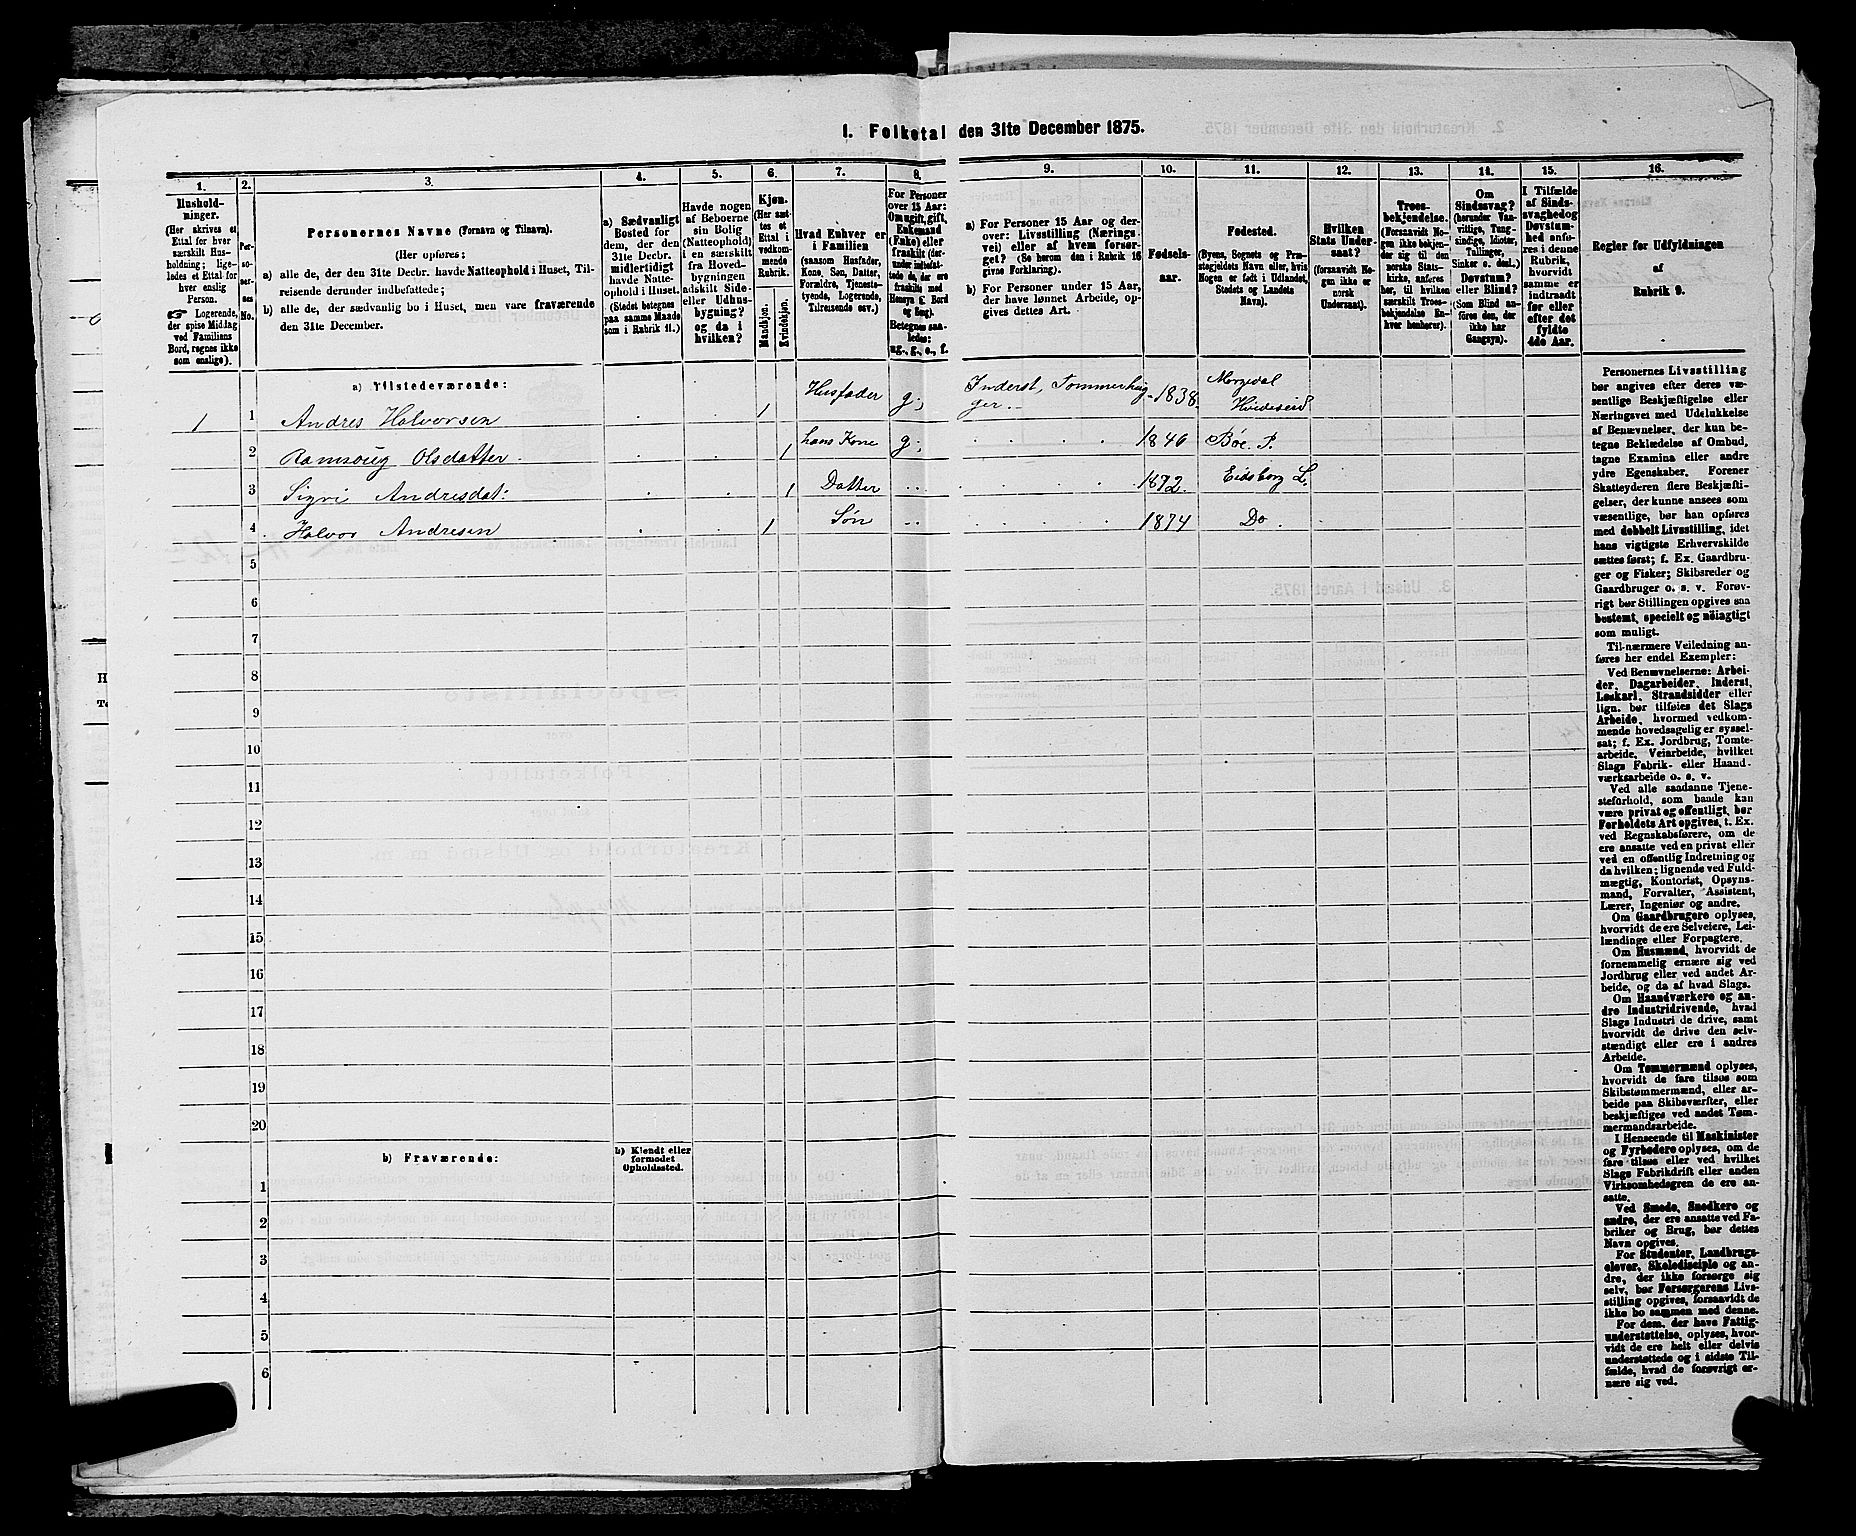 1. Folketal den 31te December 1875.
1.
2.
3.
4.
5.
6.
7.
8.
9.
10.
11.
12.
13.
14.
15.
16.
Hushold-
ninger.
(Her skrives et
Ettal for hver
særskilt Hus-
holdning; lige-
ledes et Ettal for
hver enslig
Person.
☞ Logerende,
der spise Middag
ved Familiens
Bord, regnes ikke
som enslige).
Per-
so-
ner-
nes
No.
Personernes Navne (Fornavn og Tilnavn).
(Her opføres:
a) alle de, der den 31te Decbr. havde Natteophold i Huset, Til-
reisende derunder indbefattede;
b) alle de, der sædvanlig bo i Huset, men vare fraværende
den 31te December.
a) Sædvanligt
Bosted for
dem, der den
31te Decbr.
midlertidigt
havde Natte-
ophold i Huset.
(Stedet betegnes
paa samme Maade
som i Rubrik 11.)
Havde nogen
af Beboerne
sin Bolig
(Natteophold)
i en særskilt
fra Hoved-
bygningen
adskilt Side-
eller Udhus-
bygning?
og da i
hvilken?
Kjøn.
(Her sæt-
tes et
Ettal i
vedkom-
mende
Rubrik.
Mandkjøn.
Kvindekjøn.
Hvad Enhver er
i Familien
(saasom Husfader,
Kone, Søn, Datter,
Forældre, Tjeneste-
tyende, Logerende,
Tilreisende osv.)
For Personer
over 15 Aar:
Om ugift, gift,
Enkemand
(Enke) eller
fraskilt (der-
under indbefat-
tede de, der ere
fraskilte med
Hensyn til Bord
og Seng).
Betegnes saa-
ledes:
ug., g., e., f.
a) For Personer 15 Aar og der-
over: Livsstilling (Nærings-
vei) eller af hvem forsør-
get? (Se herom den i Rubrik 16
givne Forklaring).
b) For Personer under 15 Aar,
der have lønnet Arbeide, op-
gives dettes Art.
Fødsels-
aar.
Fødested.
(Byens, Sognets og Præ-
stegjeldets Navn eller, hvis
Nogen er født i Udlandet,
Stedets og Landets
Navn).
Hvilken
Stats Under-
saat?
(forsaavidt No-
gen ikke er
norsk
Undersaat).
Troes-
bekjendelse.
(Forsaavidt No-
gen ikke bekjen-
der sig til den
norske Stats-
kirke, anføres
her, til hvilken
særskilt Troes-
bekjendelse En-
hver henhører).
Om
Sindssvag?
(herunder Van-
vittige, Tung-
sindige, Idioter,
Tullinger,
Sinker o. desl.)
Døvstum?
eller Blind?
(Som Blind an-
føres den, der
ikke har
Gangsyn).
I Tilfælde
af Sinds-
svaghed og
Døvstum-
hed anfø-
res i denne
Rubrik,
hvorvidt
samme er
indtraadt
før eller
efter det
fyldte
4de Aar.
Regler for Udfyldningen
af
Rubrik 9.
a) Tilstedeværende:
1 1 Andres Halvorsen 1 Husfader g. Inderst, Tømmerhug-
ger. 1838. Morgedal
Hvideseid
2 Ramsoug Olsdatter 1 hans Kone g. 1840 Bøe P.
3 Sigri Andresdat: 1 Datter 1872. Eidsborg L.
4 Halvor Andresen 1 Søn 1874 Do
5
6
7
8
9
10
11
12
13
14
15
16
17
18
19
20
b) Fraværende:
b) Kjendt eller
formodet
Opholdssted.
1
2
3
4
5
6
Personernes Livsstilling
bør angives efter deres væ-
sentlige Beskjæftigelse eller
Næringsvei med Udelukkelse
af Benævnelser, der kun be-
tegne Beklædelse af Ombud,
tagne Examina eller andre
ydre Egenskaber. Forener
Skatteyderen flere Beskjæfti-
gelser, der kunne ansees som
væsentlige, bør han opføres
med dobbelt Livsstilling, idet
hans vigtigste Erhvervskilde
sættes først; f. Ex. Gaardbru-
ger og Fisker; Skibsreder og
Gaardbruger o. s. v. Forøv-
rigt bør Stillingen opgives saa
bestemt, specielt og nøiagtigt
som muligt.
Til nærmere Veiledning an-
føres her endel Exempler:
Ved Benævnelserne: Arbei-
der, Dagarbeider, Inderst,
Løskarl, Strandsidder eller
lign. bør tilføies det Slags
Arbeide, hvormed vedkom-
mende hovedsagelig er syssel-
sat; f. Ex. Jordbrug, Tomte-
arbeide, Veiarbeide, hvilket
Slags Fabrik- eller Haand-
værksarbeide o. s. v.
Ved alle saadanne Tjene-
steforhold, som baade kan
være privat og offentligt, bør
Forholdets Art opgives, t. Ex.
ved Regnskabsførere, om de
ere ansatte ved en privat eller
ved en offentlig Indretning og
da hvilken; lignende ved Fuld-
mægtig, Kontorist, Opsyns-
mand, Forvalter, Assistent,
Lærer, Ingeniør og andre.
Om Gaardbrugere oplyses,
hvorvidt de ere Selveiere, Lei-
lændinge eller Forpagtere.
Om Husmænd, hvorvidt de
fornemmelig ernære sig ved
Jordbrug eller ved andet Ar-
beide, og da af hvad Slags.
Om Haandværkere og an-
dre Industridrivende, hvad
Slags Industri de drive, samt
hvorvidt de drive den selv-
stændigt eller ere i andres
Arbeide.
Om Tømmermænd oplyses,
hvorvidt de fare tilsøs som
Skibstømmermænd, eller ar-
beide paa Skibsværfter, eller
beskjæftiges ved andet Tøm-
mermandsarbeide.
I Henseende til Maskinister
og Fyrbødere oplyses, om de
fare tilsøs eller ved hvilket
Slags Fabrikdrift eller anden
Virksomhedsgren de ere an-
satte.
Ved Smede, Snedkere og
andre, der ere ansatte ved Fa-
briker og Brug, bør dettes
Navn opgives.
For Studenter, Landbrugs-
elever, Skoledisciple og an-
dre, der ikke forsørge sig
selv, bør Forsørgerens Livs-
stilling opgives, forsaavidt de
ikke bo sammen med denne.
For dem, der have Fattig-
understøttelse, oplyses, hvor-
vidt de ere helt eller delvis
understøttede og i sidste Til-
fælde, hvad de forøvrigt er-
nære sig ved.